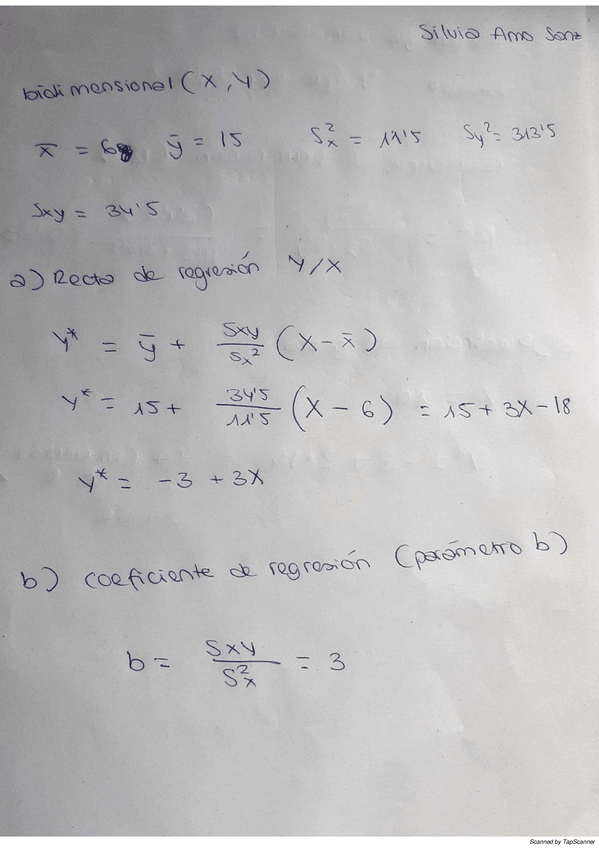 Silvia Amo Sanz
bidimensional (X, Y)
x̄ = 6 ȳ = 15 Sx² = 11'5 Sy² = 313'5
Sxy = 34'5
a) Recta de regresión Y/X
y* = ȳ + Sxy/Sx² (X - x̄)
y* = 15 + 34'5/11'5 (X - 6) = 15 + 3X - 18
y* = -3 + 3X
b) coeficiente de regresión (parámetro b)
b = Sxy/Sx² = 3
Scanned by TapScanner